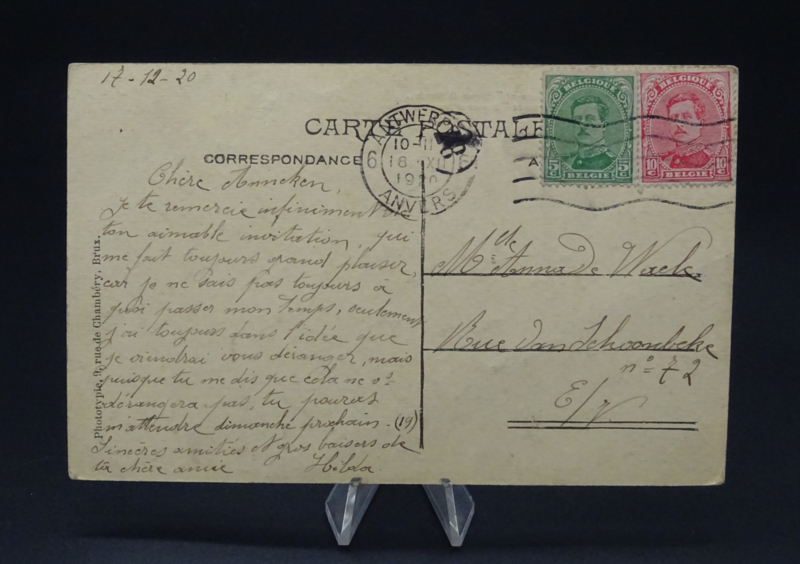 17-12-20
CARTE POSTALE
CORRESPONDANCE
BELGIQUE
5 C
5 C
BELGIË
BELGIQUE
10 C
10 C
BELGIË
ANTWERPEN
6
10-11
16 XII
1920
6
ANVERS
Chère Anneken,
Je te remercie infiniment de
ton aimable invitation, qui
me fait toujours grand plaisir,
car je ne sais pas toujours à
quoi passer mon temps, seulement
j'ai toujours dans l'idée que
je viendrai vous déranger, mais
puisque tu me dis que cela ne vs
dérangera pas, tu pourras
m'attendre dimanche prochain. (19)
Sincères amitiés et gros baisers de
ta chère amie Hilda
Mlle Anna De Wael
Rue Van Schoonbeke
n° = 72
E/V.
Phototypie, 9, rue de Chambéry, Brux.